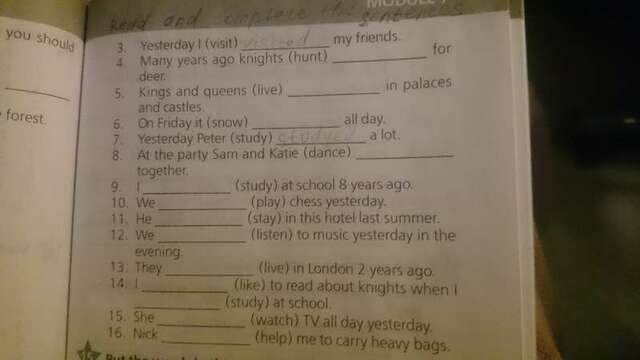 MODULE 7
Read and complete the sentences
you should
3. Yesterday I (visit) visited my friends.
4 Many years ago knights (hunt) ____________ for
deer.
5. Kings and queens (live) ____________ in palaces
and castles.
forest.
6. On Friday it (snow) ____________ all day.
7. Yesterday Peter (study) studyed a lot.
8. At the party Sam and Katie (dance) ____________
together.
9. I ____________ (study) at school 8 years ago.
10. We ____________ (play) chess yesterday.
11. He ____________ (stay) in this hotel last summer.
12. We ____________ (listen) to music yesterday in the
evening.
13. They ____________ (live) in London 2 years ago.
14. I ____________ (like) to read about knights when I
____________ (study) at school.
15. She ____________ (watch) TV all day yesterday.
16. Nick ____________ (help) me to carry heavy bags.